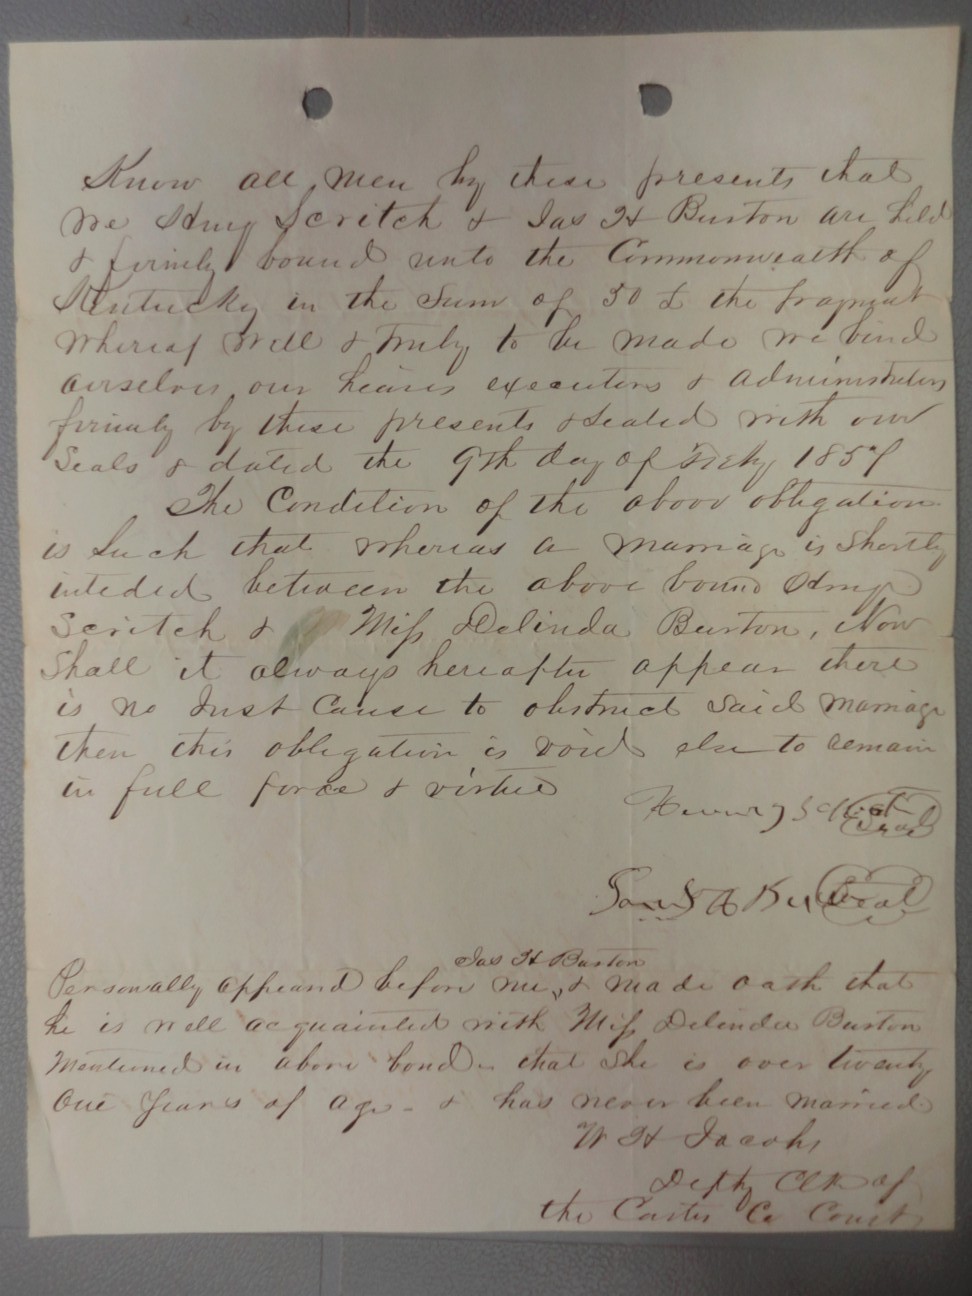 Know all Men by these presents that
We Hnry Scritch & Jas H Burton are held
& firmly bound unto the Commonwealth of
Kentucky in the Sum of 50 £ the
Whereof Well & truly to be made we bind
ourselves our heirs executors & administrators
firmly by these presents & Sealed with our
Seals & dated the 9th day of 1857
The Condition of the above obligation
is Such that whereas a marriage is Shortly
inteded between the above bound
Scritch & Miss Delinda Burton, Now
Shall it always hereafter appear there
is no Just Cause to obstruct Said Marriage
then this obligation is void else to remain
in full force & virtue
Henry Seal
H Seal
Jas H Burton
Personally appeard before me, & made oath that
he is well acquainted with Miss Delinda Burton
Mentioned in above bond that She is over twenty
One Years of age - & has never been married
W H Jacobs
Depty Clk of
the Carter Co Court